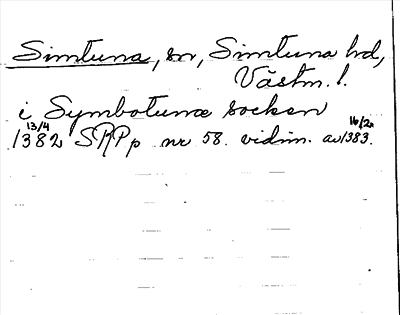 Simtuna, sn, Simtuna hd,
Västm. l.
i Symbotuna socken
13/4 1382 SRPp nr 58. vidim. av 16/2 1383.